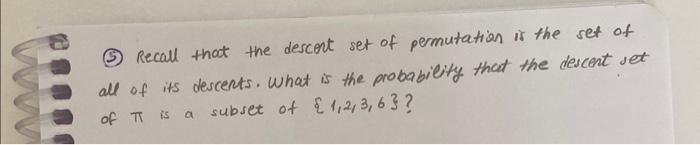 ⑤ Recall that the descent set of permutation is the set of
all of its descents. What is the probability that the descent set
of π is a subset of {1,2,3,6}?